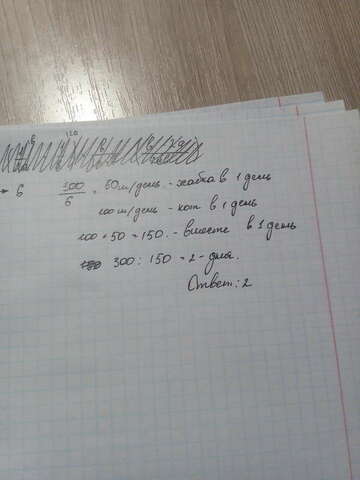 6 300/6 = 50 м/день. - жабка в 1 день
100 м/день - кот в 1 день
100 + 50 = 150. - вместе в 1 день
300 : 150 = 2 - дня.
Ответ: 2